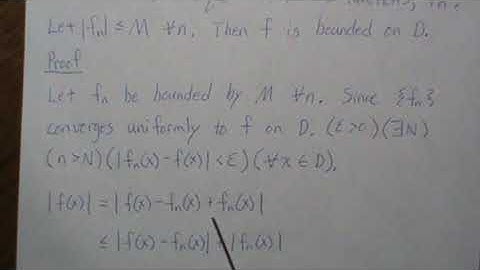 Let |fₙ| ≤ M ∀n. Then f is bounded on D.
Proof
Let fₙ be bounded by M ∀n. Since {fₙ}
converges uniformly to f on D. (ε>0)(∃N)
(n>N)(|fₙ(x)-f(x)|<ε)(∀x∈D).
|f(x)| = |f(x)-fₙ(x)+fₙ(x)|
≤ |f(x)-fₙ(x)|+|fₙ(x)|